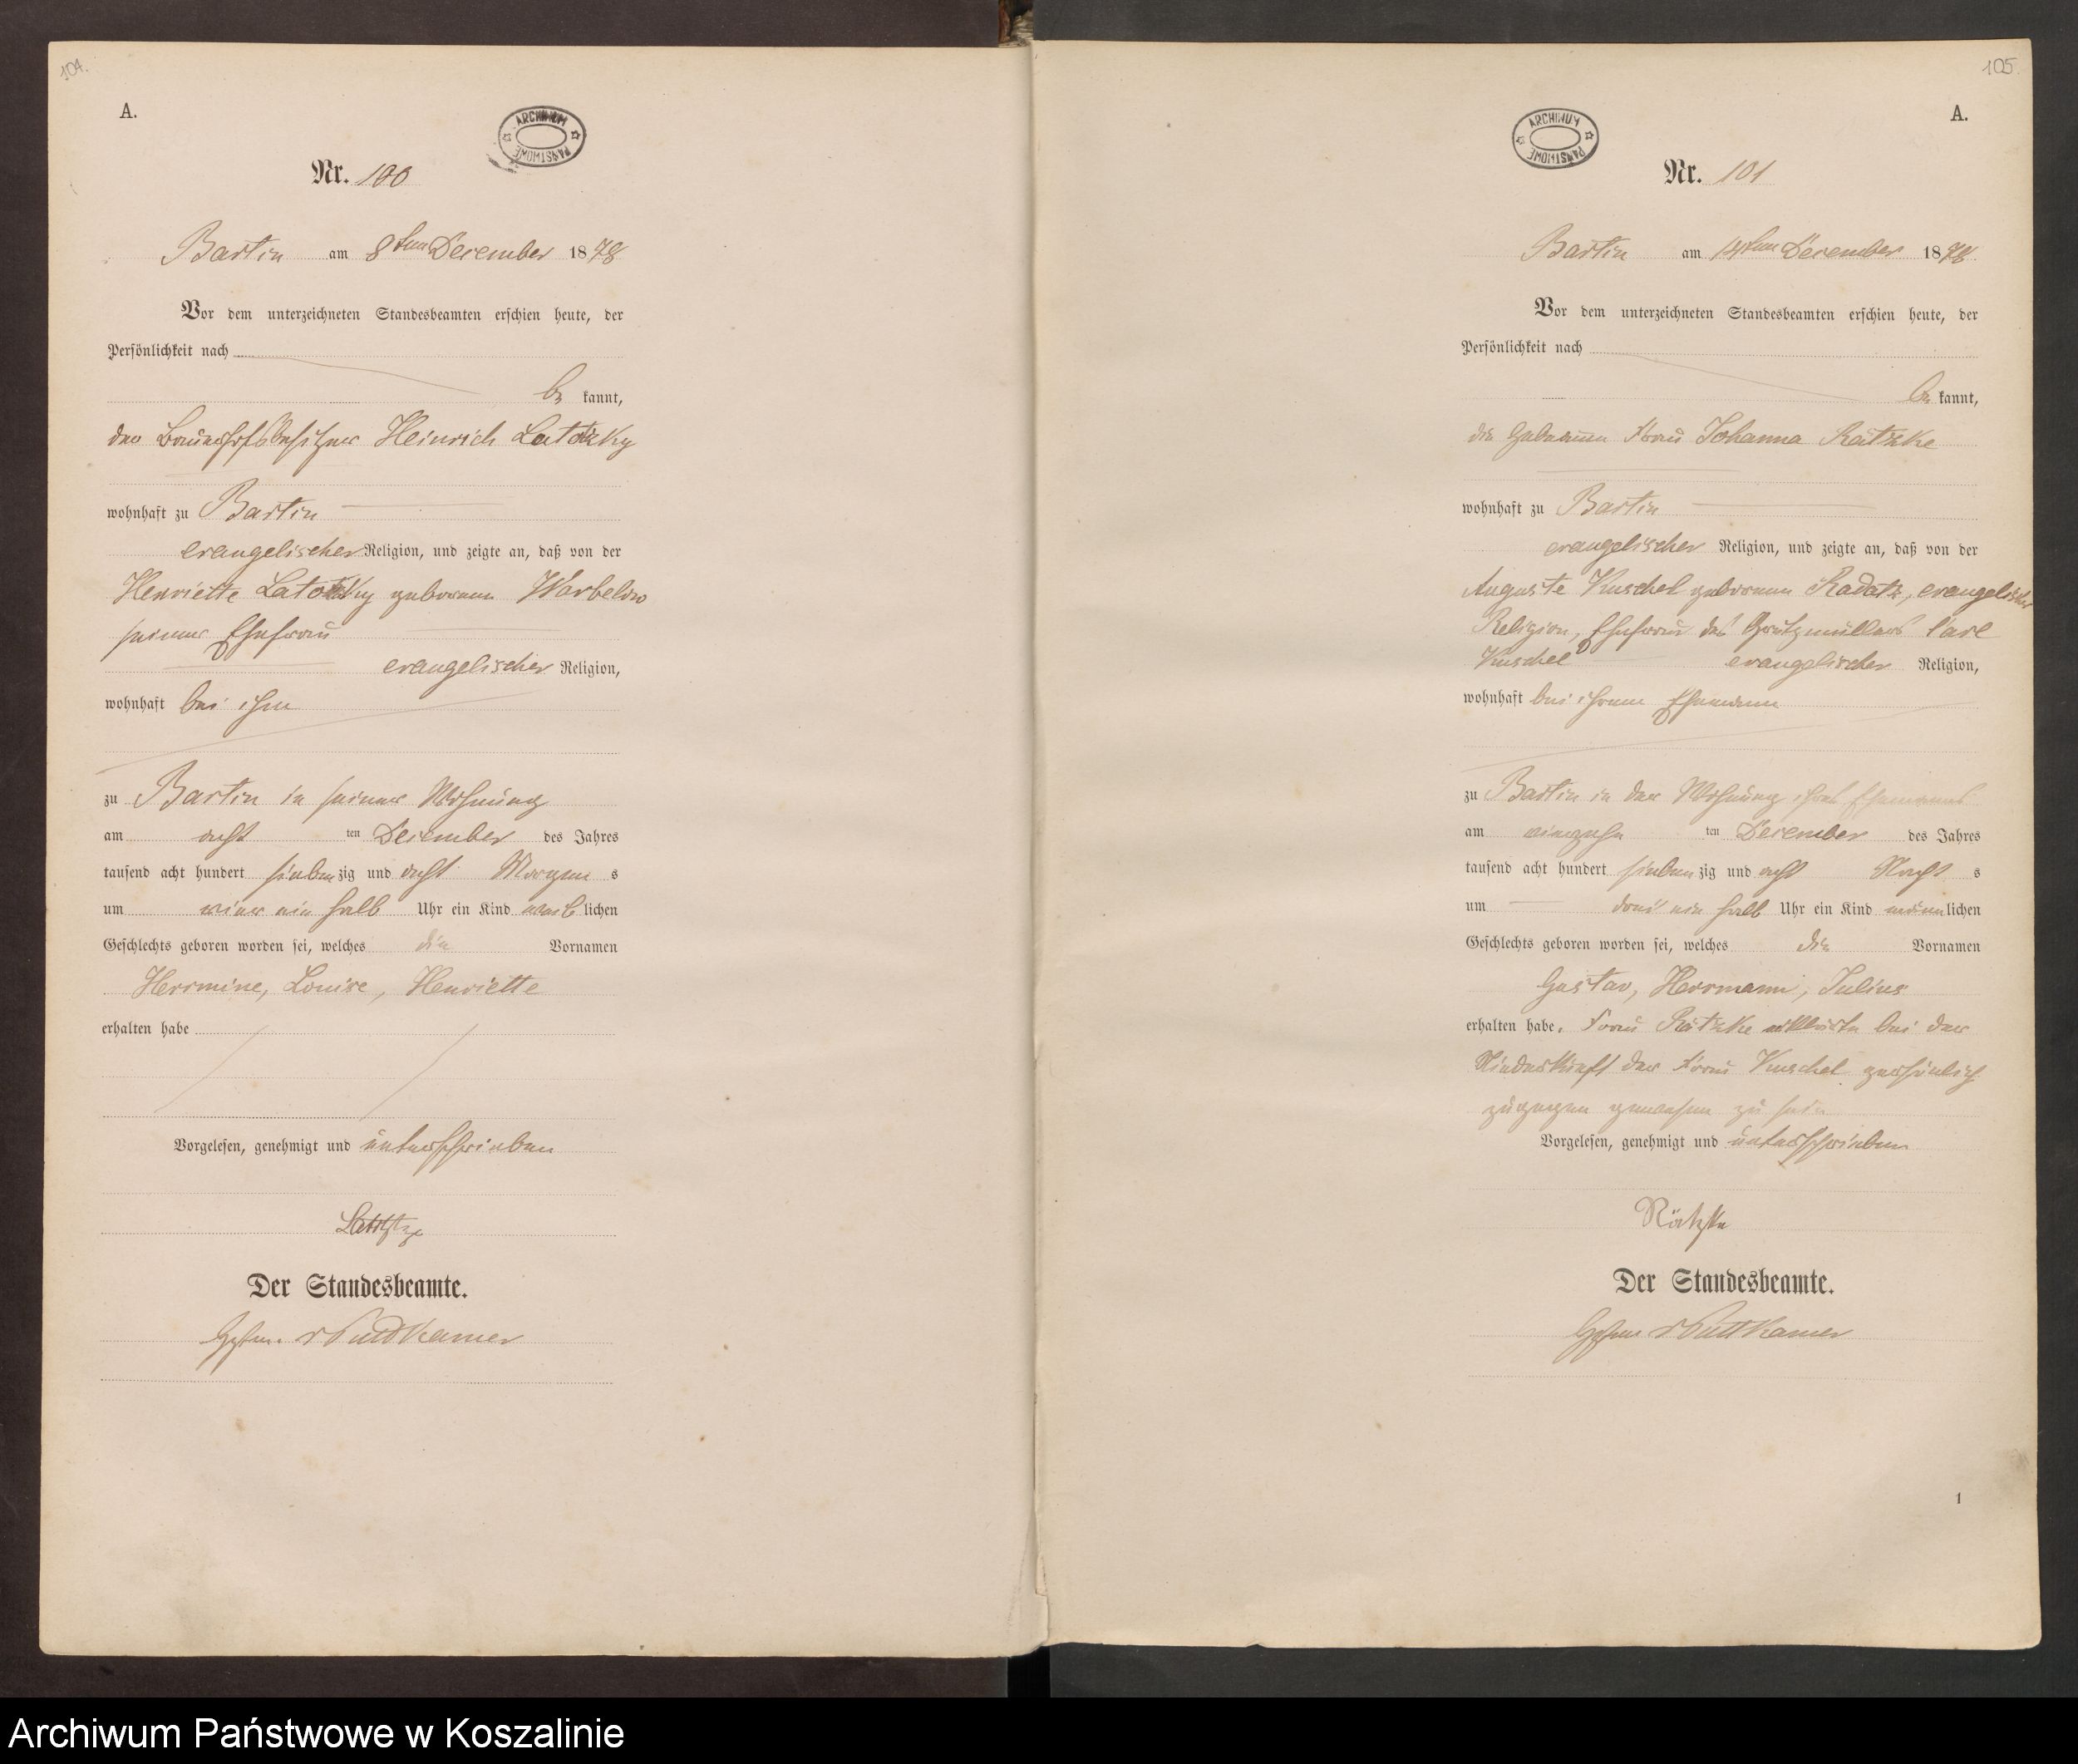 104.
A.
ARCHIWUM
PAŃSTWOWE
Nr. 100
Bartin am 8ten December 1878
Vor dem unterzeichneten Standesbeamten erschien heute, der
Persönlichkeit nach
be kannt,
der Bauerhofsbesitzer Heinrich Latotzky
wohnhaft zu Bartin
evangelischer Religion, und zeigte an, daß von der
Henriette Latotzky geborenen Warbelow
seiner Ehefrau
evangelischer Religion,
wohnhaft bei ihm
zu Bartin in seiner Wohnung
am acht ten December des Jahres
tausend acht hundert siebenzig und acht Morgens
um vier ein halb Uhr ein Kind weiblichen
Geschlechts geboren worden sei, welches die Vornamen
Hermine, Louise, Henriette
erhalten habe
Vorgelesen, genehmigt und unterschrieben
Der Standesbeamte.
v Puttkamer
105.
A.
ARCHIWUM
PAŃSTWOWE
Nr. 101
Bartin am 14ten December 1878
Vor dem unterzeichneten Standesbeamten erschien heute, der
Persönlichkeit nach
be kannt,
die Hebamme Frau Johanna Rätzke
wohnhaft zu Bartin
evangelischer Religion, und zeigte an, daß von der
Auguste Kuschel geborenen Radatz, evangelischer
Religion, Ehefrau des Grützmüllers Carl
Kuschel evangelischer Religion,
wohnhaft bei ihrem Ehemann
zu Bartin in der Wohnung ihres Ehemannes
am vierzehn ten December des Jahres
tausend acht hundert siebenzig und acht Nachts
um drei ein halb Uhr ein Kind männlichen
Geschlechts geboren worden sei, welches die Vornamen
Gustav, Herrmann, Julius
erhalten habe. Frau Rätzke erklärte bei der
Niederkunft der Frau Kuschel persönlich
zugegen gewesen zu sein
Vorgelesen, genehmigt und unterschrieben
Rätzke
Der Standesbeamte.
v Puttkamer
1
Archiwum Państwowe w Koszalinie